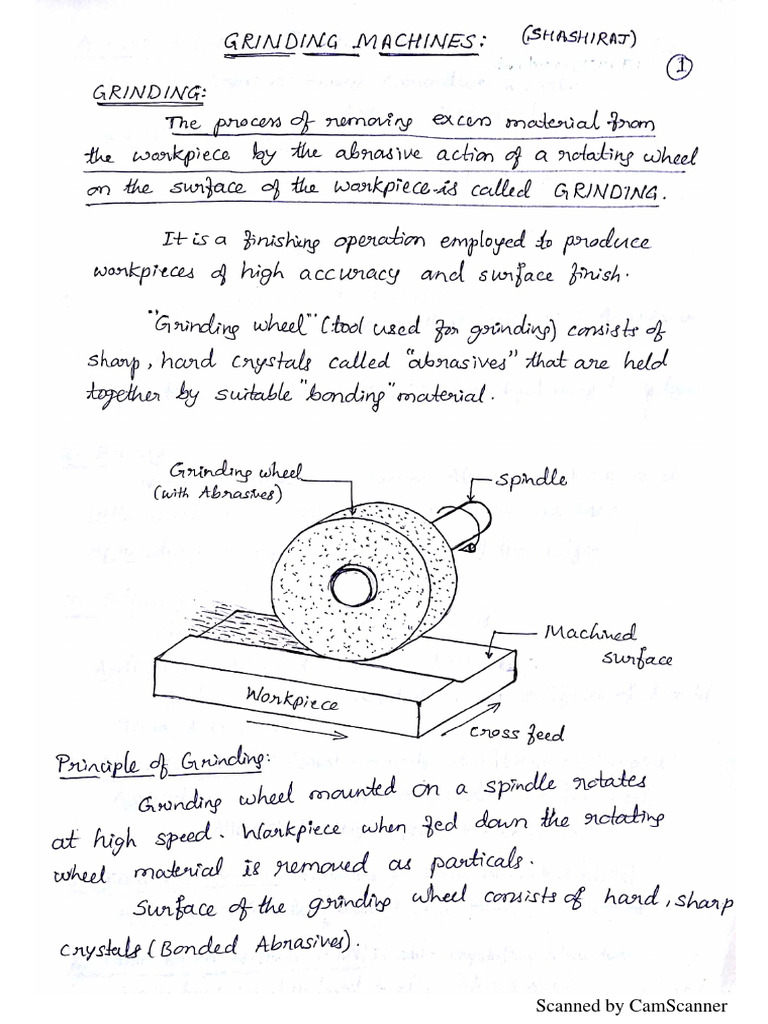 GRINDING MACHINES: (SHASHIRAJ)
1
GRINDING:
The process of removing excess material from
the workpiece by the abrasive action of a rotating wheel
on the surface of the workpiece is called GRINDING.
It is a finishing operation employed to produce
workpieces of high accuracy and surface finish.
"Grinding wheel" (tool used for grinding) consists of
sharp, hard crystals called "abrasives" that are held
together by suitable "bonding" material.
Grinding wheel
(with Abrasives)
Spindle
Machined
surface
Workpiece
Cross feed
Principle of Grinding:
Grinding wheel mounted on a spindle rotates
at high speed. Workpiece when fed down the rotating
wheel material is removed as particals.
Surface of the grinding wheel consists of hard, sharp
crystals (Bonded Abrasives).
Scanned by CamScanner